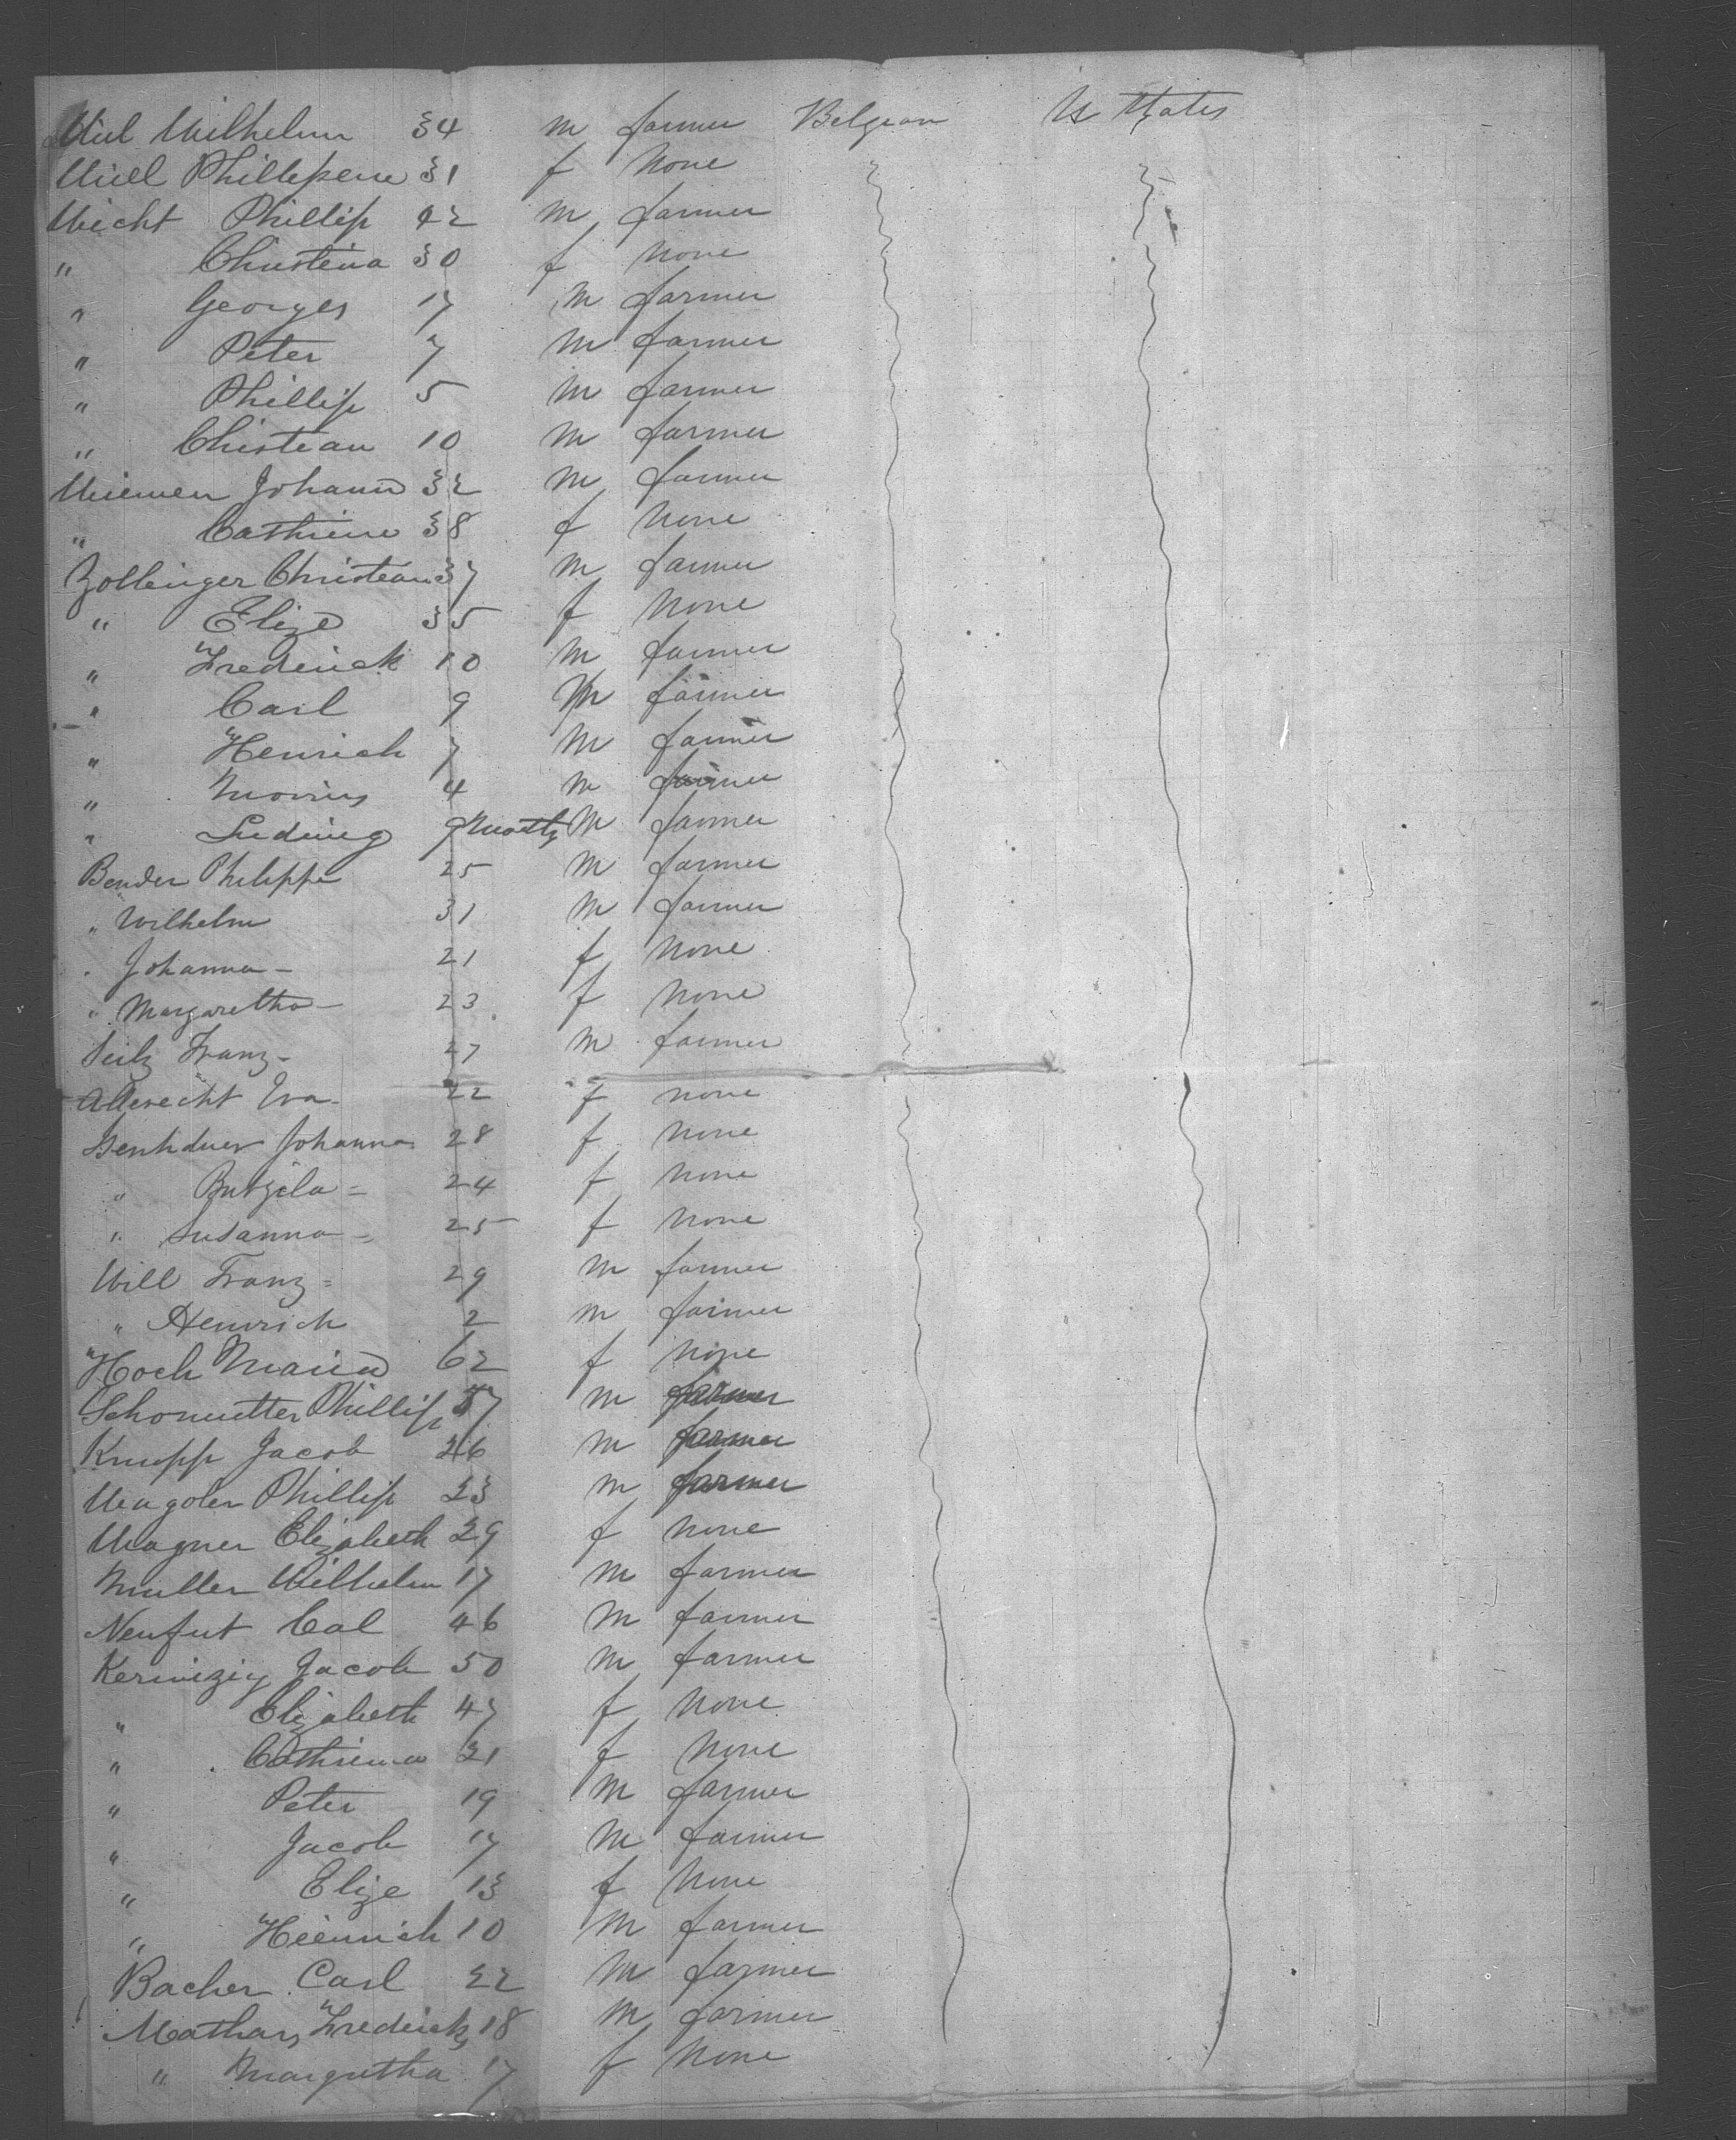 Wiel Wilhelm 34 m farmer Belgian U States
Wiell Phillepene 31 f none
Wicht Phillip 42 m farmer
" Christina 30 f none
" Georges 17 m farmer
" Peter 7 m farmer
" Phillip 5 m farmer
" Christean 10 m farmer
Wiemen Johann 32 m farmer
" Cathrine 38 f none
Zollinger Christean 37 m farmer
" Elize 35 f none
" Frederick 10 m farmer
" Carl 9 m farmer
" Henrich 7 m farmer
" Morris 4 m farmer
" Ludwig 9 months m farmer
Bender Philippe 25 m farmer
" Wilhelm 31 m farmer
" Johanna - 21 f none
" Margaretha - 23 f none
Seitz Franz - 27 m farmer
Albrecht Eva - 22 f none
Johanna 28 f none
" 24 f none
" Susanna - 25 f none
Will Franz = 29 m farmer
" Heinrich 2 m farmer
Hoch Maria 62 f none
Schomutter Phillip 57 m farmer
Knupp Jacob 26 m farmer
Phillip 23 m farmer
Wagner Elizabeth 29 f none
Muller Wilhelm 17 m farmer
Neufut Cal 46 m farmer
Jacob 50 m farmer
" Elizabeth 47 f none
" Cathrina 21 f none
" Peter 19 m farmer
" Jacob 17 m farmer
" Elize 13 f none
" Heinrich 10 m farmer
Bacher Carl 22 m farmer
Mathas Fredericks 18 m farmer
" Margretha 17 f none